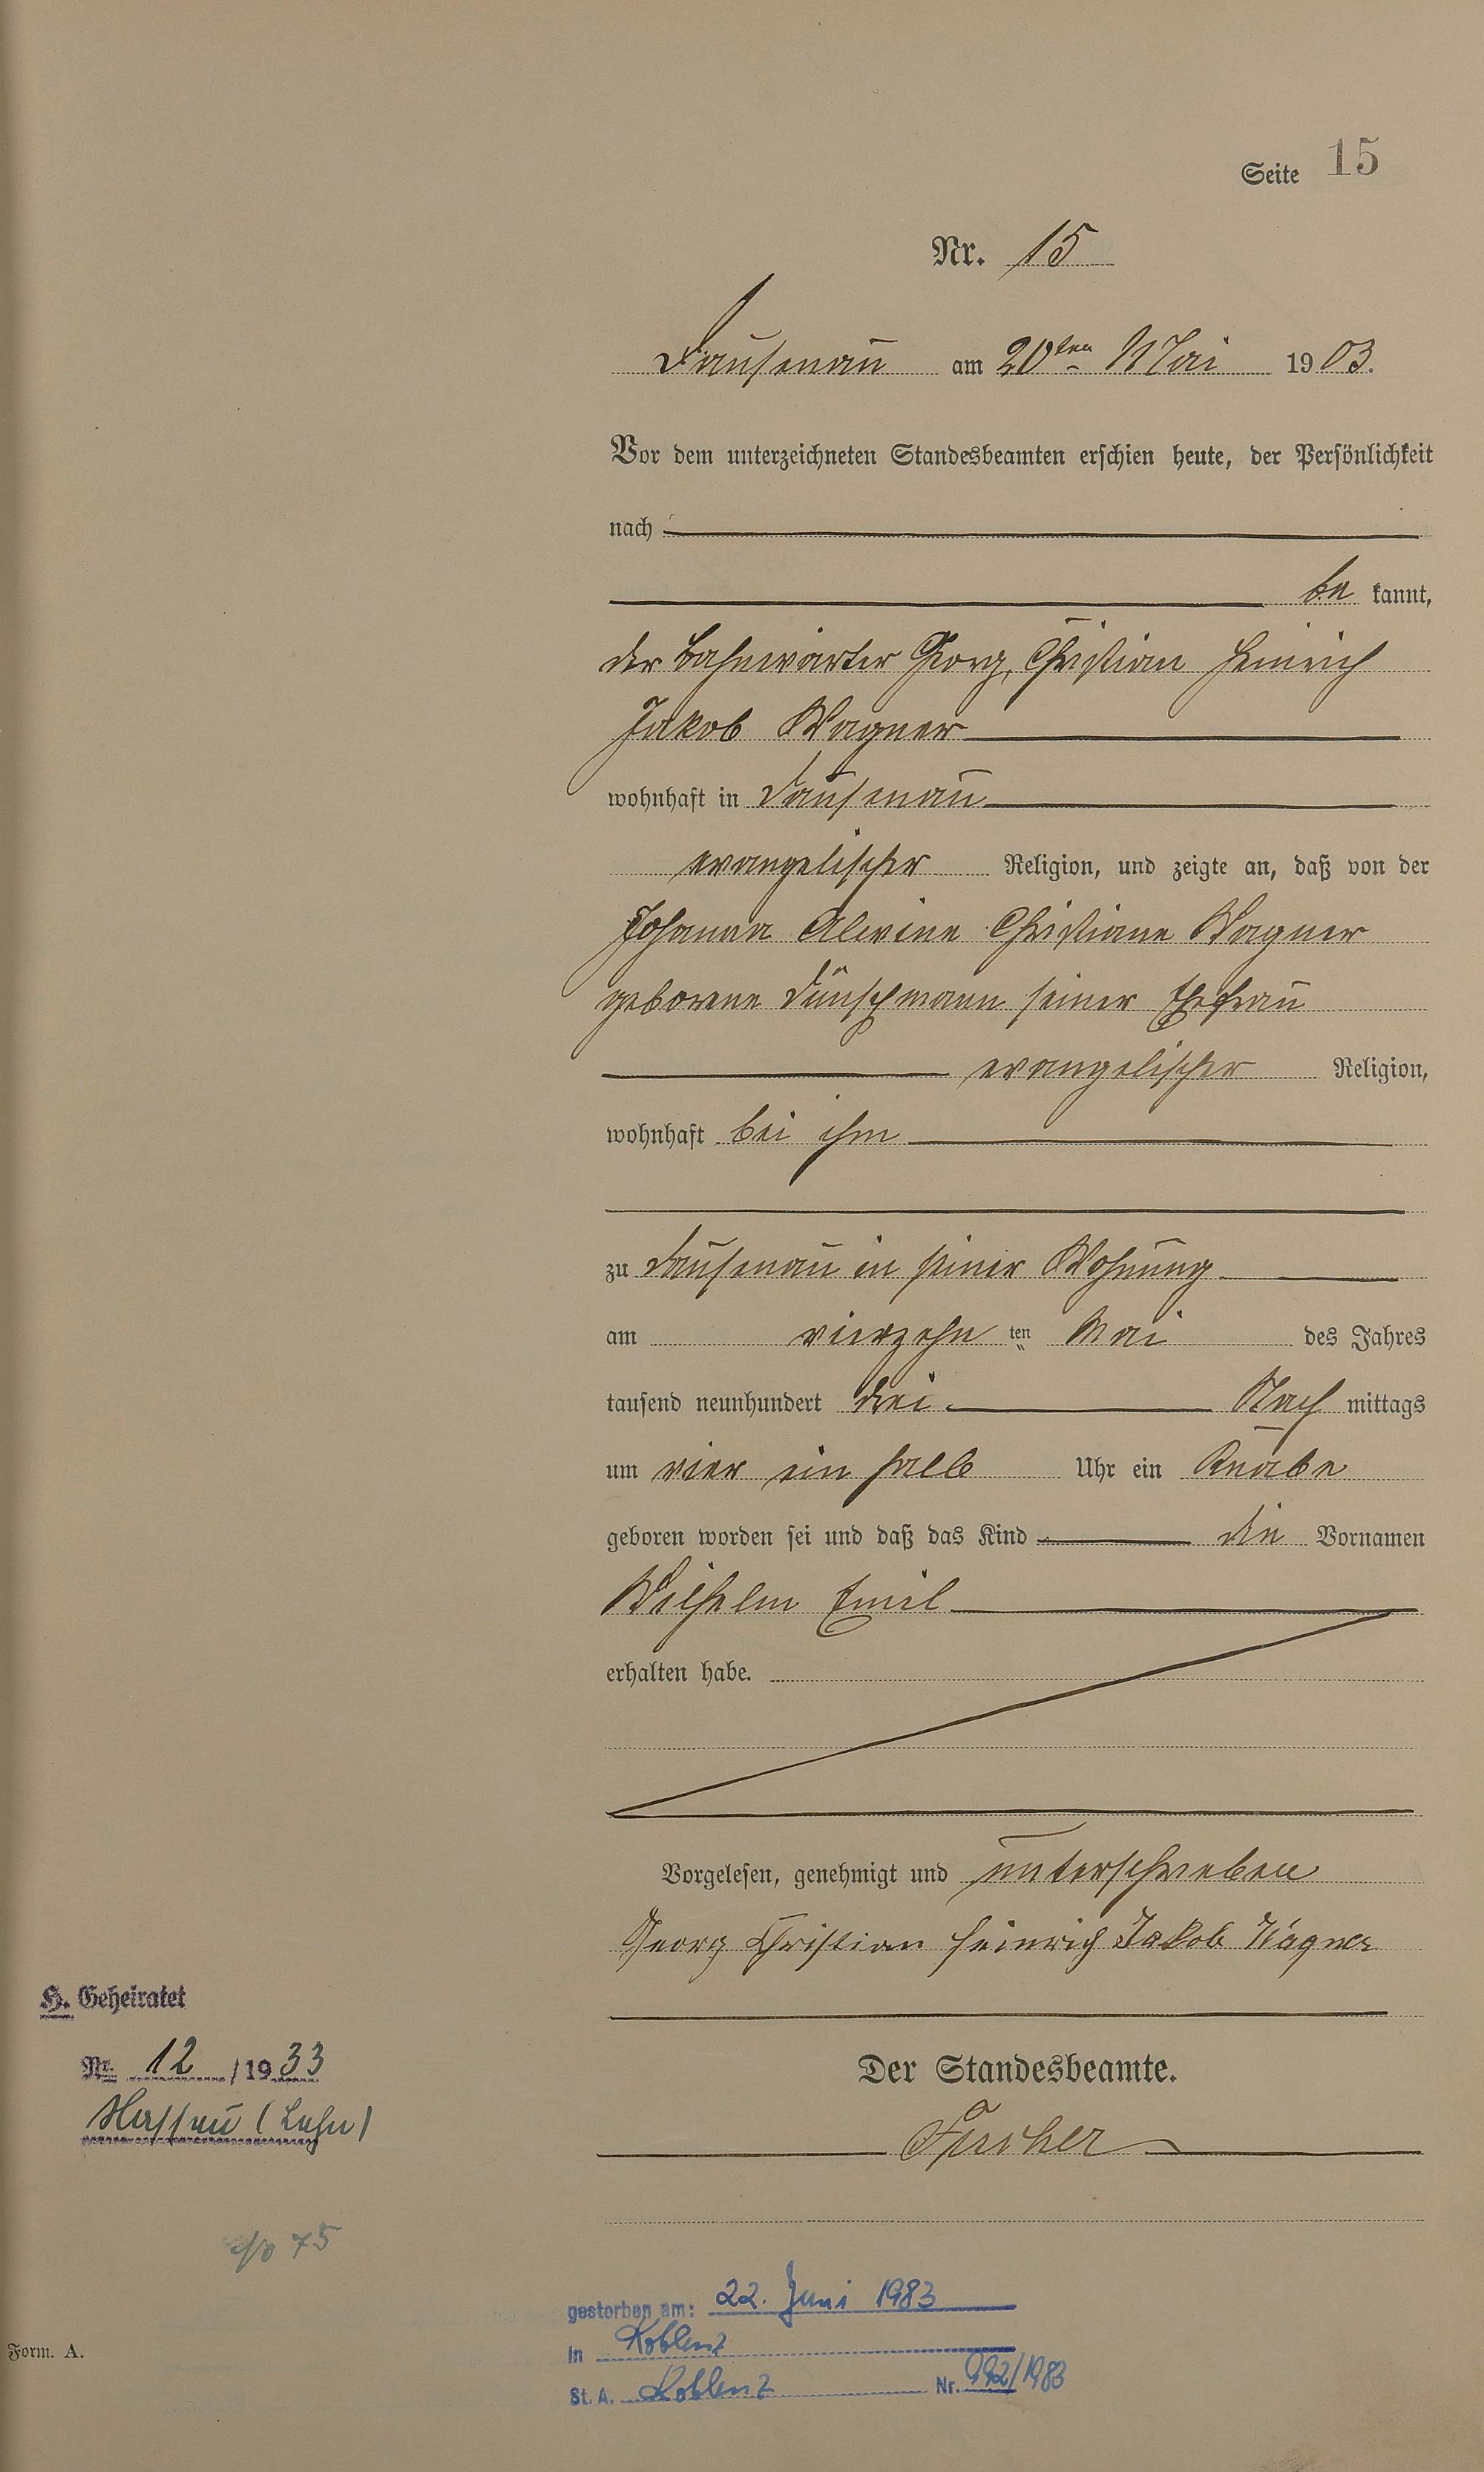 Seite 15
Nr. 15
Dausenau am 20ten Mai 1903.
Vor dem unterzeichneten Standesbeamten erschien heute, der Persönlichkeit
nach
be kannt,
der Bahnwärter Georg, Christian Heinrich
Jakob Wagner
wohnhaft in Dausenau
evangelischer Religion, und zeigte an, daß von der
Johanna Alwine Christiane Wagner
geborene Dünschmann seiner Ehefrau
evangelischer Religion,
wohnhaft bei ihm
zu Dausenau in seiner Wohnung
am vierzehn ten Mai des Jahres
tausend neunhundert drei Nach mittags
um vier ein halb Uhr ein Knabe
geboren worden sei und daß das Kind die Vornamen
Wilhelm Emil
erhalten habe.
Vorgelesen, genehmigt und unterschrieben
Georg Christian Heinrich Jakob Wagner
H. Geheiratet
Nr. 12 /1933
Nassau (Lahn)
Der Standesbeamte.
75
gestorben am: 22. Juni 1983
in Koblenz
St. A. Koblenz Nr. 992/1983
Form. A.